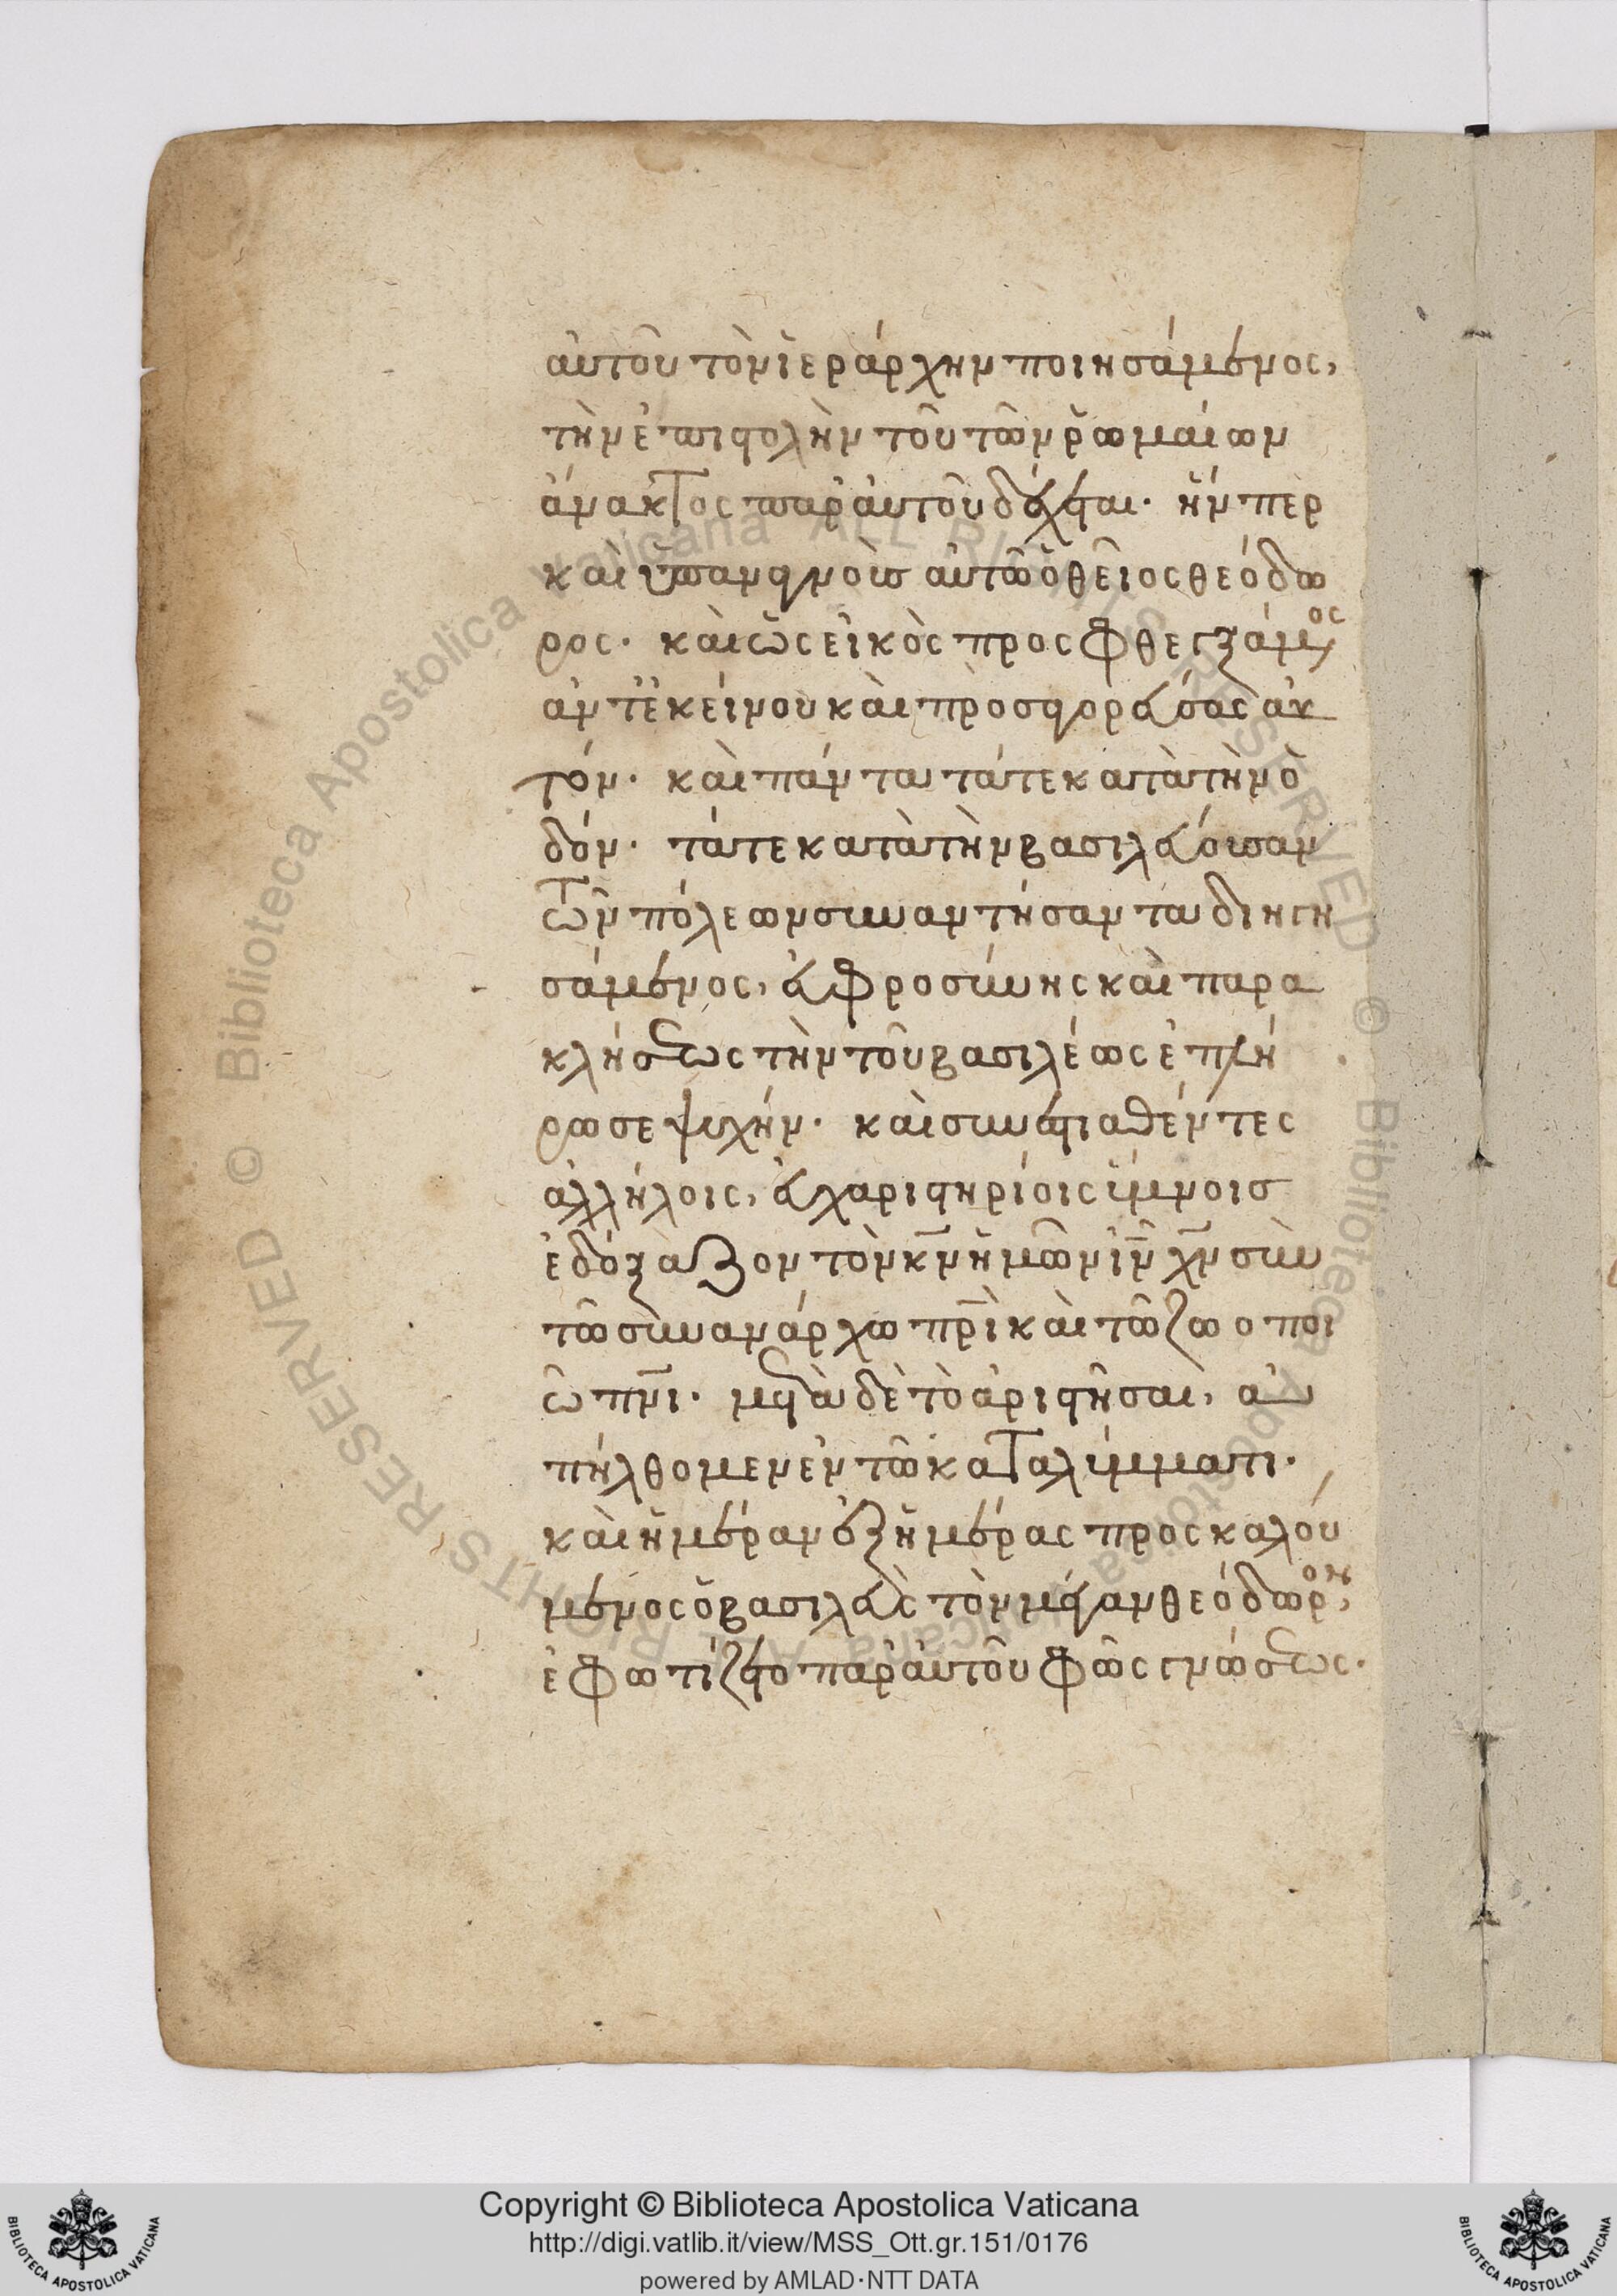 αὐτοῦ τὸν ἱεράρχην ποιησάμενος,
τὴν ἐπιστολὴν τοῦ τῶν ῥωμαίων
ἄνακτος παρ' αὐτοῦ δέχεται· ἥνπερ
καὶ ὑπανεγνοὺς αὐτῶ ὁ θεῖος θεόδω
ρος· καὶ ὡς εἰκὸς προσφθεγξάμενος
ἀντ' ἐκείνου καὶ προσαγορεύσας αὐ
τόν· καὶ πάντα τά τε κατὰ τὴν ὁ
δόν· τά τε κατὰ τὴν βασιλεύουσαν
τῶν πόλεων συναντήσαντα διηγη
σάμενος, εὐφροσύνης καὶ παρα
κλήσεως τὴν τοῦ βασιλέως ἐπλή
ρωσε ψυχήν· καὶ συνεστιαθέντες
ἀλλήλοις, εὐχαριστηρίοις ὕμνοισ
ἐδόξαζον τὸν κν ἡμῶν ιν χν σὺν
τῶ συνανάρχω πρι καὶ τῶ ζωοποι
ῶ πνι· μετὰ δὲ τὸ ἀριστῆσαι, ἀ
πήλθομεν ἐν τῶ καταλύμματι·
καὶ ἡμέραν ἐξ ἡμέρας προσκαλού
μενος ὁ βασιλεὺς τὸν μέγαν θεόδωρον,
ἐφωτίζετο παρ' αὐτοῦ φῶς γνώσεως·
Copyright © Biblioteca Apostolica Vaticana
http://digi.vatlib.it/view/MSS_Ott.gr.151/0176
powered by AMLAD·NTT DATA
BIBLIOTECA APOSTOLICA VATICANA
BIBLIOTECA APOSTOLICA VATICANA
© Biblioteca Apostolica Vaticana ALL RIGHTS RESERVED © Biblioteca Apostolica Vaticana ALL RIGHTS RESERVED